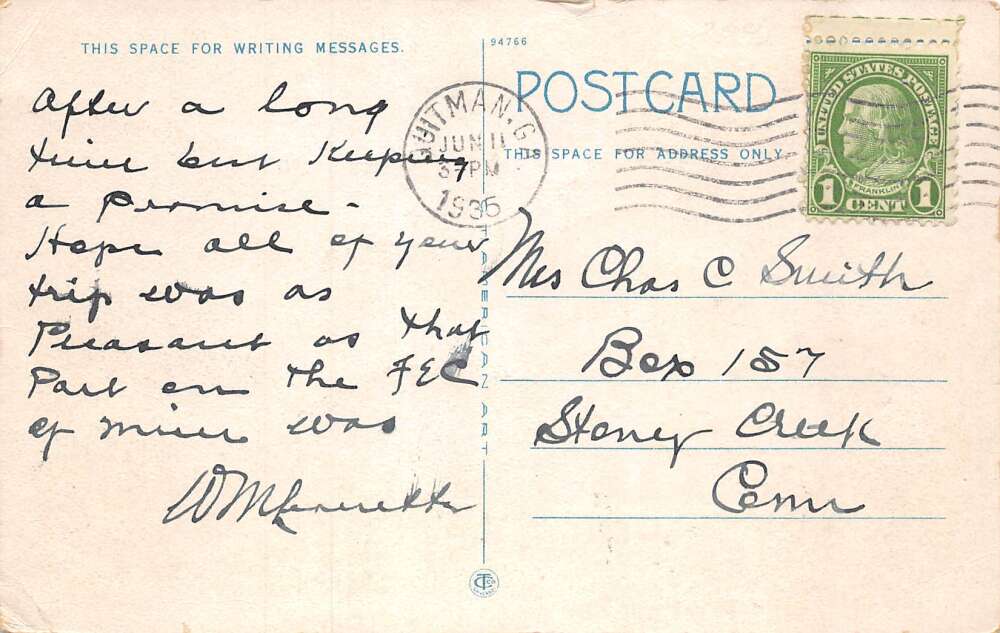 THIS SPACE FOR WRITING MESSAGES.
After a long
time but Keeping
a Promise -
Hope all of your
trip was as
Pleasant as that
Part on the FEC
of mine was
94766
POST CARD
THIS SPACE FOR ADDRESS ONLY.
QUITMAN, G
JUN 11
37PM
1935
UNITED STATES POSTAGE
FRANKLIN
1 CENT 1
Mrs Chas C Smith
Box 157
Stoney Creek
Conn
AMERICAN ART